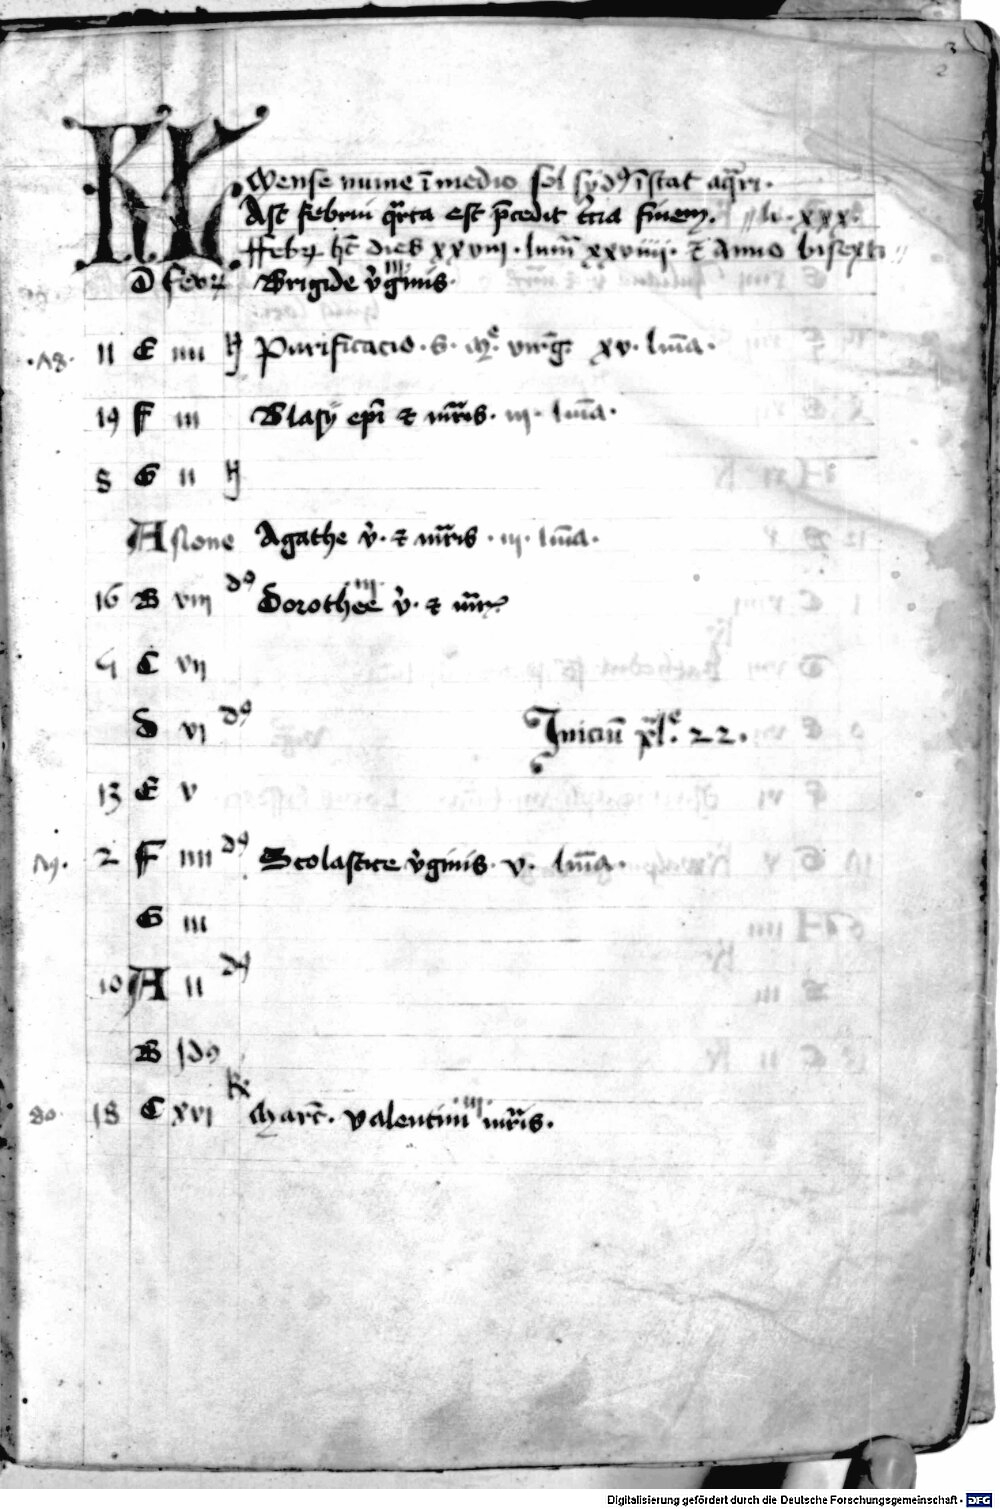 3
2
KL Mense nume i medio sol syd9 istat aqri.
Ast februi qrta est pcedit tcia finem. h. xxx.
Febr hc dies xxviii. lum xxviiii. et Anno bisexti
d febr Brigide vginis. iii
.A8. 11 E iiii N Purificacio. S. M e. virg. xv. lma.
19 F iii Blasy epi et mris. iii. lma.
8 G ii N
A none Agathe v. et mris. iii. lma.
16 B viii d9 Dorothee v. et mr iii
5 C vii
d vi d9 Iniciu xl e. 22.
13 E v
2 F iiii d9 Scolastice vginis. v. lma.
G iii
10 A ii
B id9
18 C xvi Marc. Valentini mris. iii
Digitalisierung gefördert durch die Deutsche Forschungsgemeinschaft - DFG